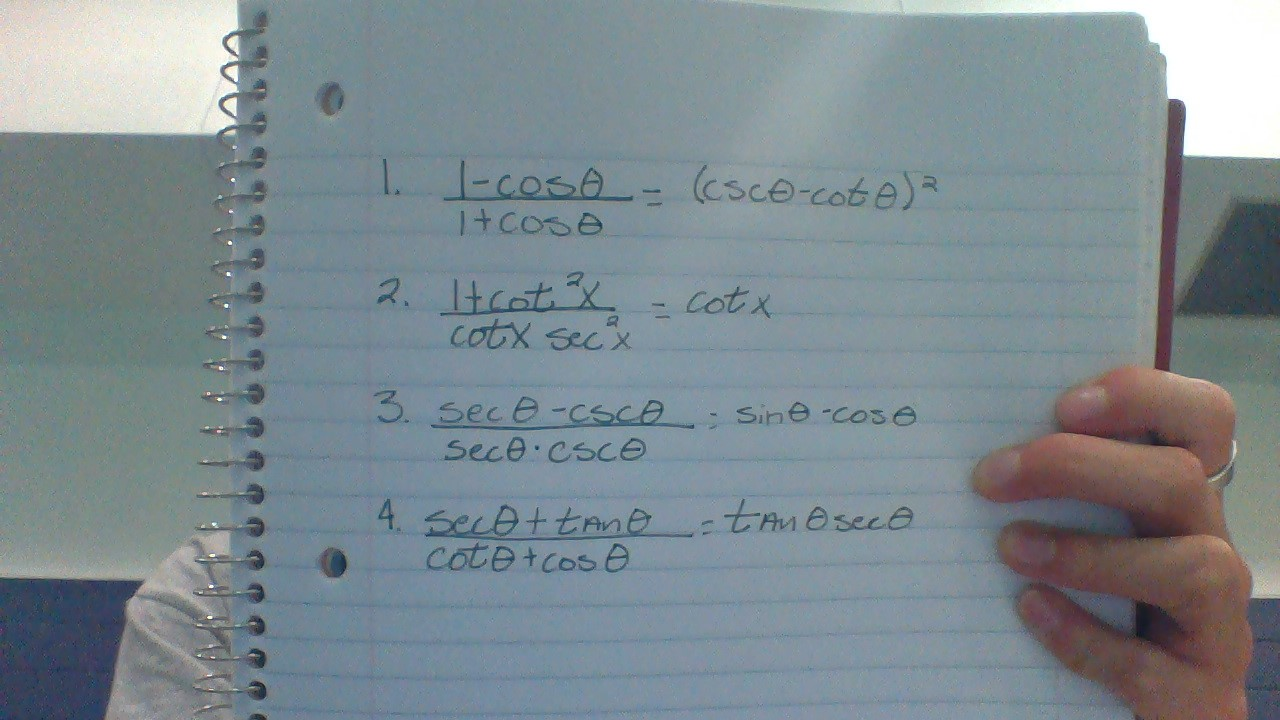 1. 1-cosθ/1+cosθ = (cscθ-cotθ)²
2. 1+cot²x/cotx sec²x = cotx
3. secθ-cscθ/secθ·cscθ = sinθ-cosθ
4. secθ+tanθ/cotθ+cosθ = tanθsecθ